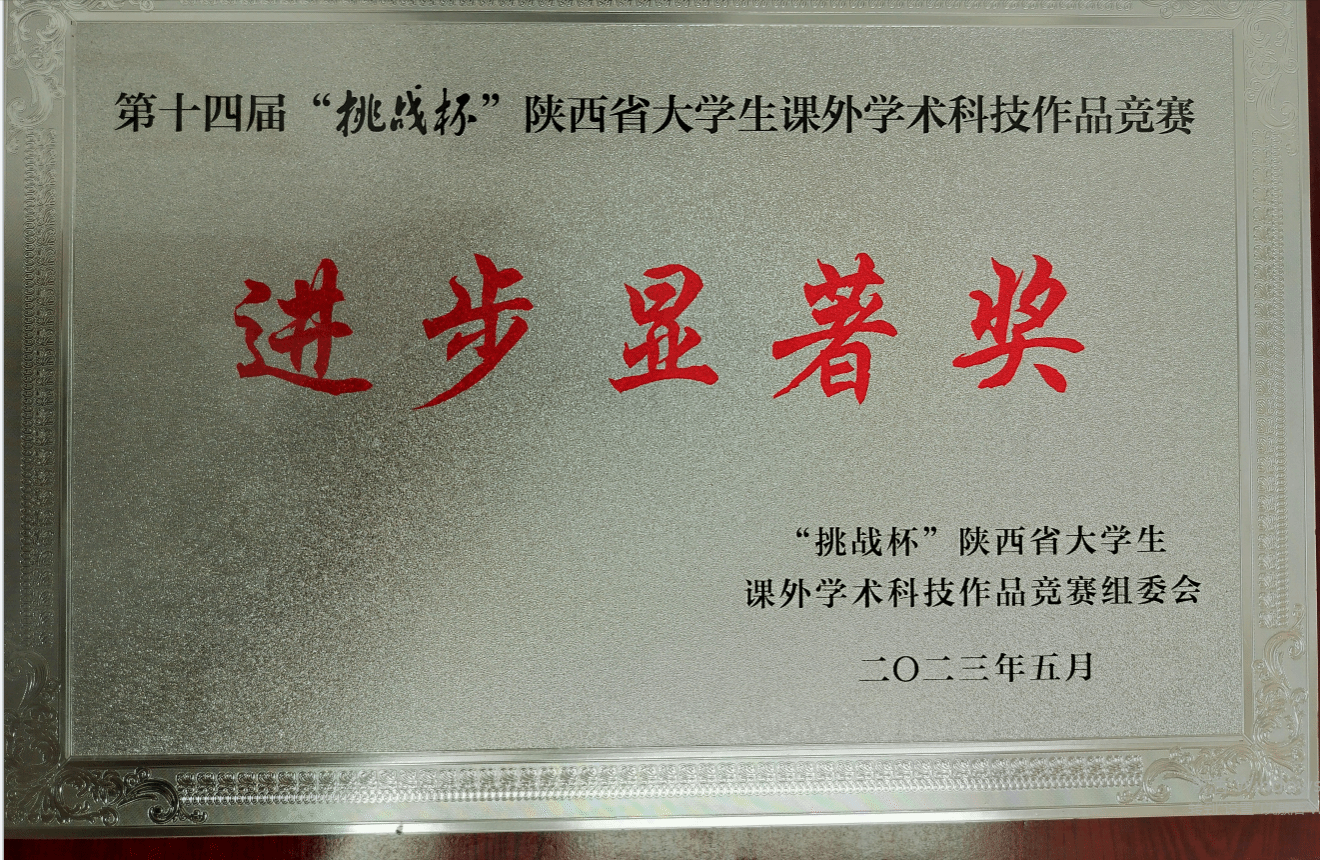 第十四届“挑战杯”陕西省大学生课外学术科技作品竞赛
进步显著奖
“挑战杯”陕西省大学生
课外学术科技作品竞赛组委会
二〇二三年五月